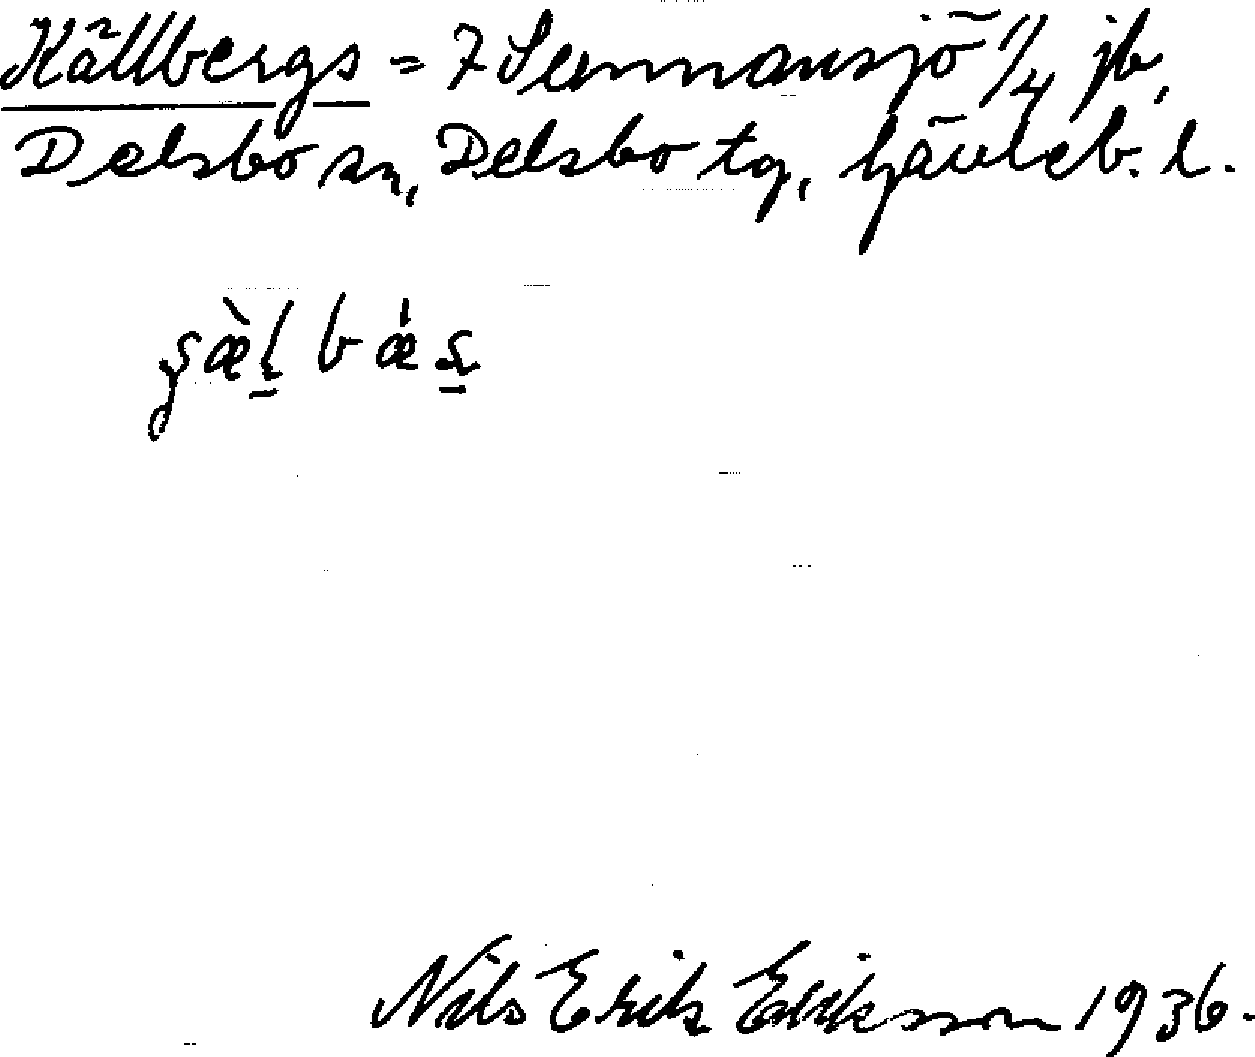 Källbergs = 7 Sennansjö 1/4 jb,
Delsbo sn, Delsbo tg, Gävleb. l.
Nils Erik Eriksson 1936.